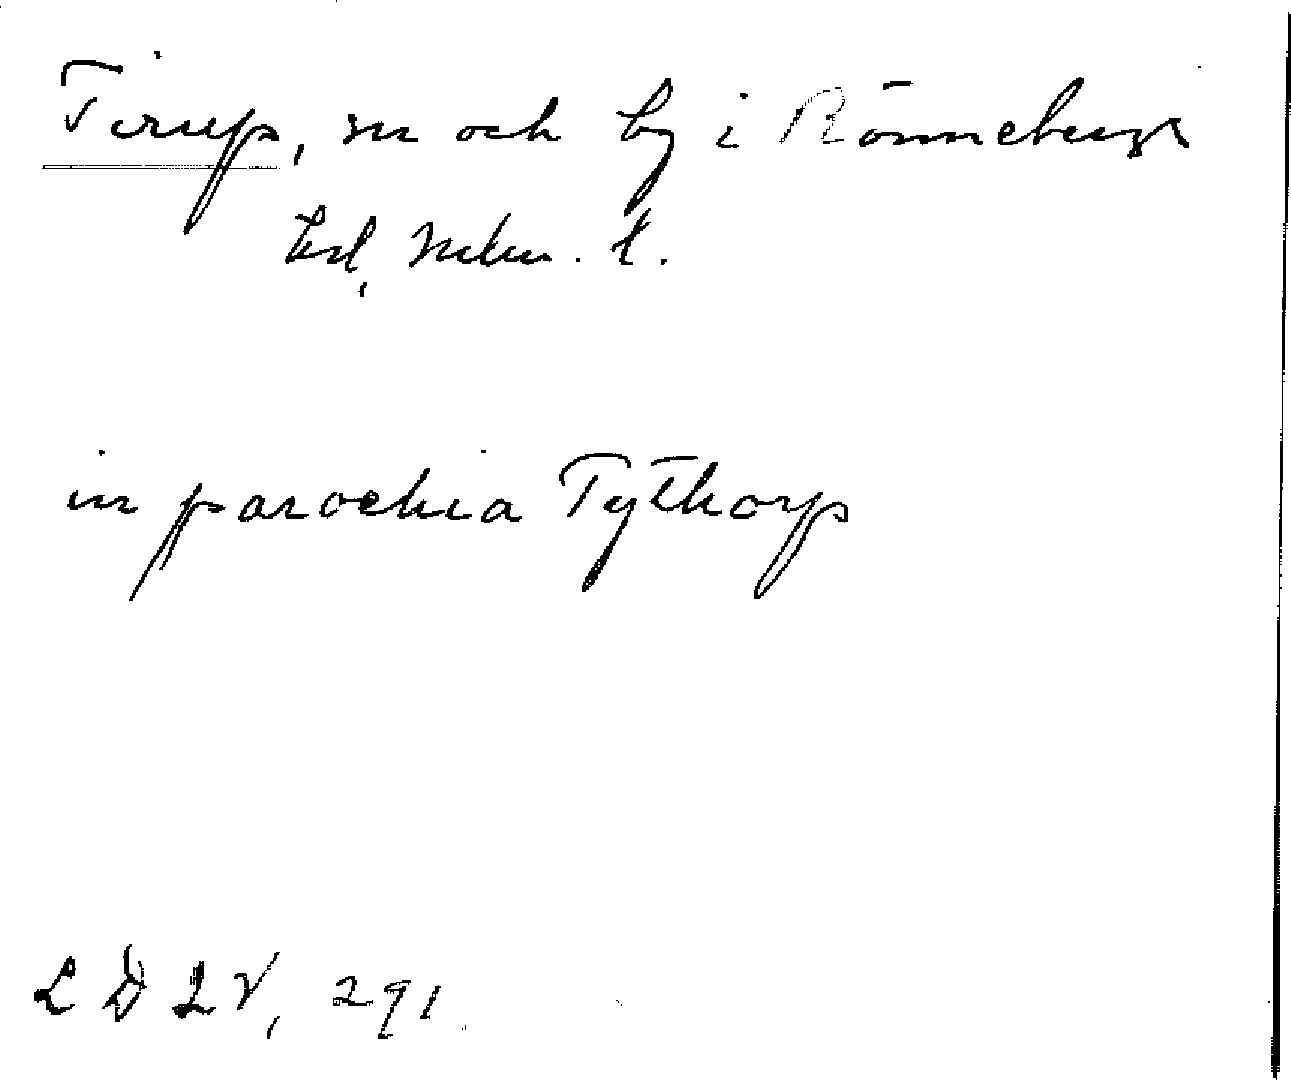 Tirup, sn och by i Rönnebergs
hd, Mlm. l.
in parochia Tythorp
LDLV, 291